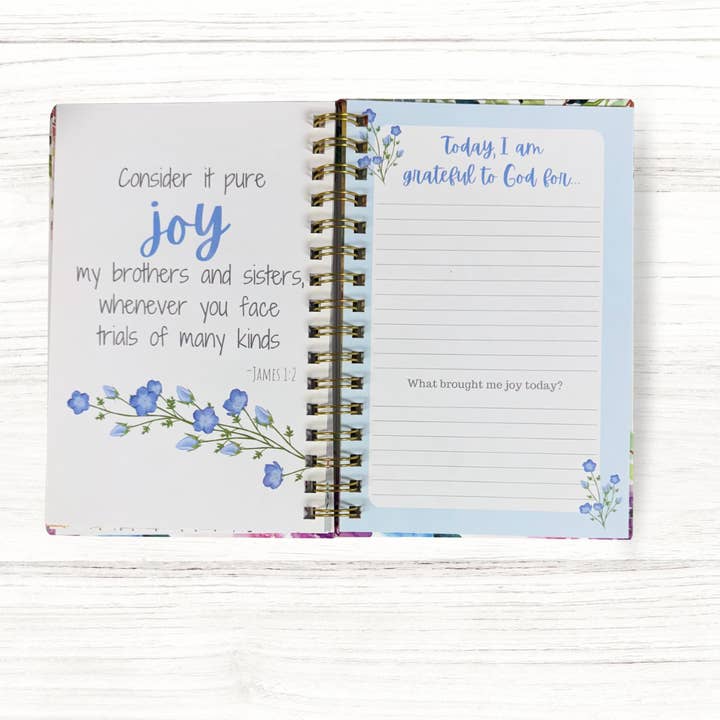 Consider it pure
joy
my brothers and sisters,
whenever you face
trials of many kinds
~James 1:2
Today, I am
grateful to God for...
What brought me joy today?